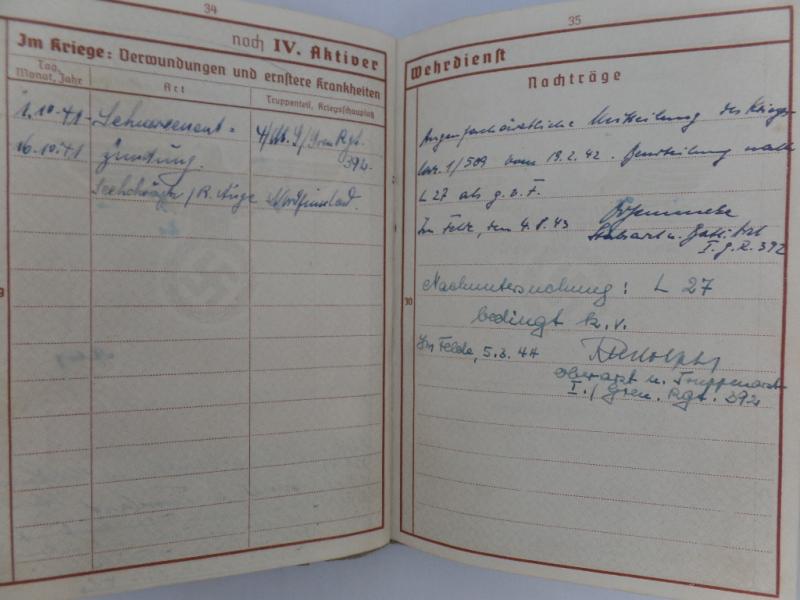 34
noch IV. Aktiver
Im Kriege: Verwundungen und ernstere Krankheiten
Tag, Monat, Jahr
Art
Truppenteil, Kriegsschauplatz
1.10.41-
16.10.41
Sehnervenent=
zündung.
/ R. Auge
Gren Rgt.
392.
Nordfinnland.
35
Wehrdienst
Nachträge
Augenfachärztliche
des Kriegs-
1/509 vom 19.2.42. Beurteilung nach
L 27 als g.v.F.
Im Felde, den 4.8.43
Stabsarzt u. Batl. Arzt
I. G.R. 392
Nachuntersuchung: L 27
bedingt k.v.
Im Felde, 5.3.44
Rudolphi
Oberarzt u. Truppenarzt
I./ Gren. Rgt. 392